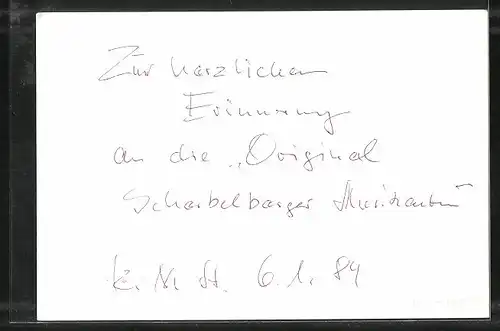 Zur herzlichen
Erinnerung
an die „Original
Scherbelberger Musikanten"
6.1.84